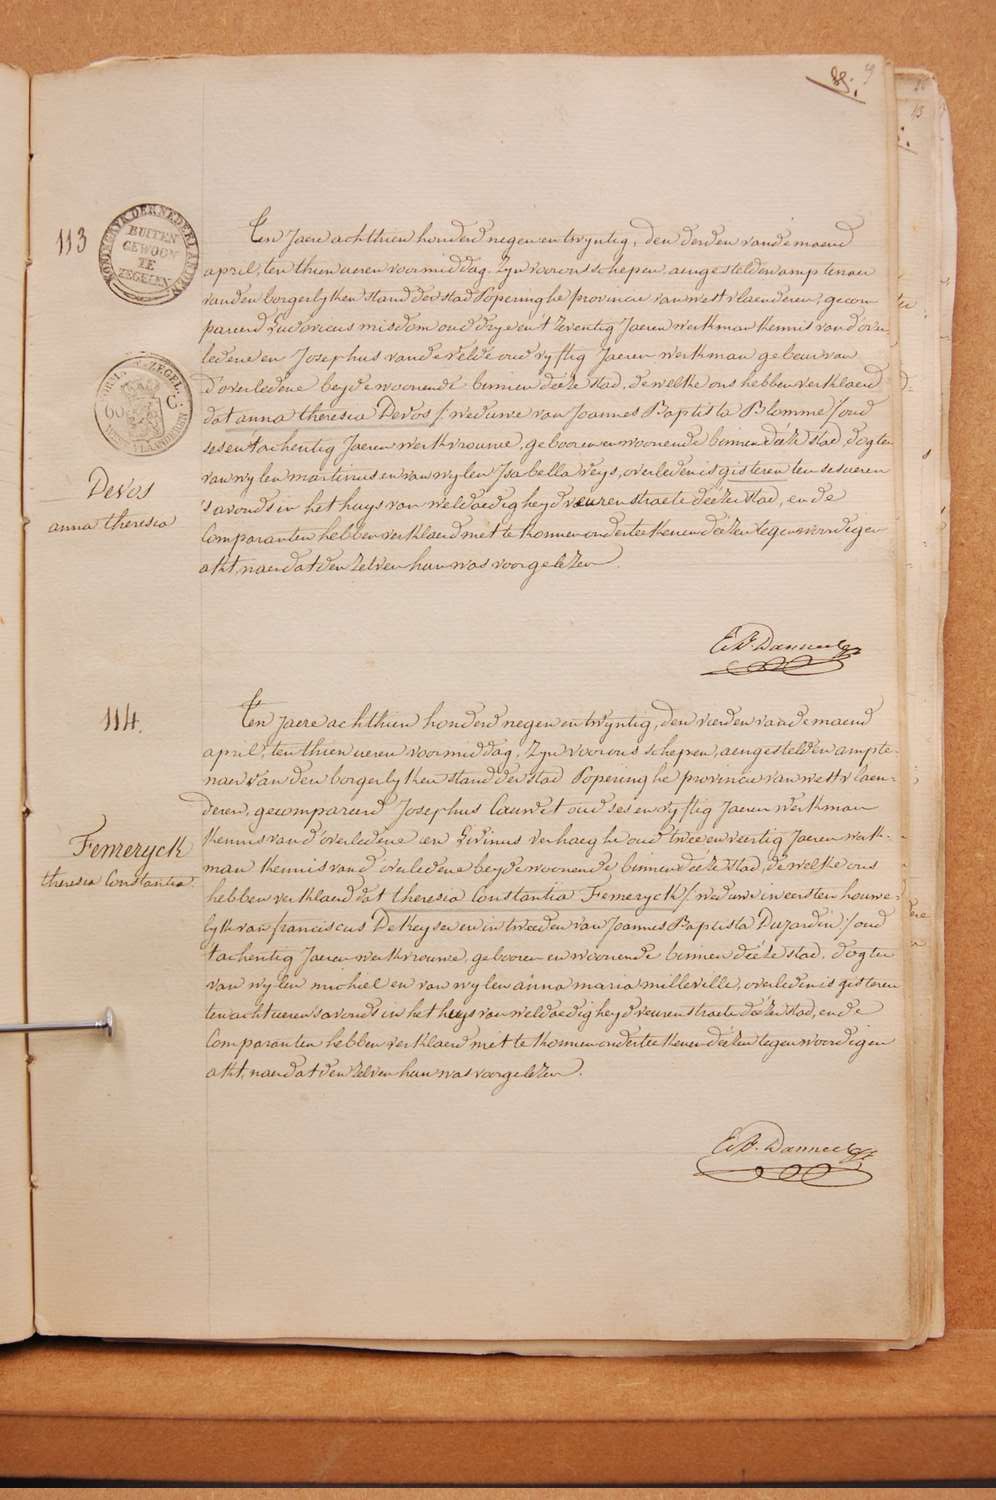 113
KONINGRYK DER NEDERLANDEN
BUITEN
GEWOON
TE
ZEGELEN
Ten Jaere achthien honderd negen en twyntig, den derden vande maend
april, ten thien ueren voormiddag. Zyn voor ons schepen, aengestelden amptenaer
van den borgerlyken stand der stad Poperinghe provincie van westvlaenderen, gecom
pareerd Ludovicus misdom oud drye en 't Zeventig Jaeren werkman kennis van d'over
ledene en Josephus vande velde oud vyftig Jaeren werkman gebeur van
d'overledene beyde woonende binnen deéze stad, de welke ons hebben verklaerd
dat anna theresia Devos /: weduwe van Joannes Baptista Blomme / oud
ses en tachentig Jaeren werkvrouwe, gebooren en woonende binnen deéze stad, dogter
van wylen martinus en van wylen Isabella veys, overleden is gisteren ten ses ueren
's avonds in het huys van weldaedigheyd veurenstraete deézer stad, en de
Comparanten hebben verklaerd niet te konnen onderteekenen deézen tegenwoordigen
akt, naer dat den zelven hun was voorgelezen.
60 C
Devos
anna theresia
114.
Ten Jaere achthien honderd negen en twyntig, den vierden vande maend
april, ten thien ueren voormiddag. Zyn voor ons schepen, aengestelden ampte-
naer van den borgerlyken stand der stad Poperinghe provincie van westvlaen-
deren, gecompareerd Josephus Cauwet oud ses en vyftig Jaeren werkman
kennis van d'overledene en Livinus verhaeghe oud twee en veertig Jaeren werk-
man kennis van d'overledene beyde woonende binnen deéze stad, de welke ons
hebben verklaerd dat theresia Constantia Femeryck /: weduwe in eersten houwe-
lyk van franciscus Dekeyser en in tweeden van Joannes Baptista Dujardin / oud
tachentig Jaeren werkvrouwe, gebooren en woonende binnen deéze stad, dogter
van wylen michiel en van wylen anna maria milleville, overleden is gisteren
ten acht ueren savonds in het huys van weldaedigheyd veurenstraete deézer stad, en de
Comparanten hebben verklaerd niet te konnen onderteekenen deézen tegenwoordigen
akt, naer dat den zelven hun was voorgelezen.
Femeryck
theresia Constantia